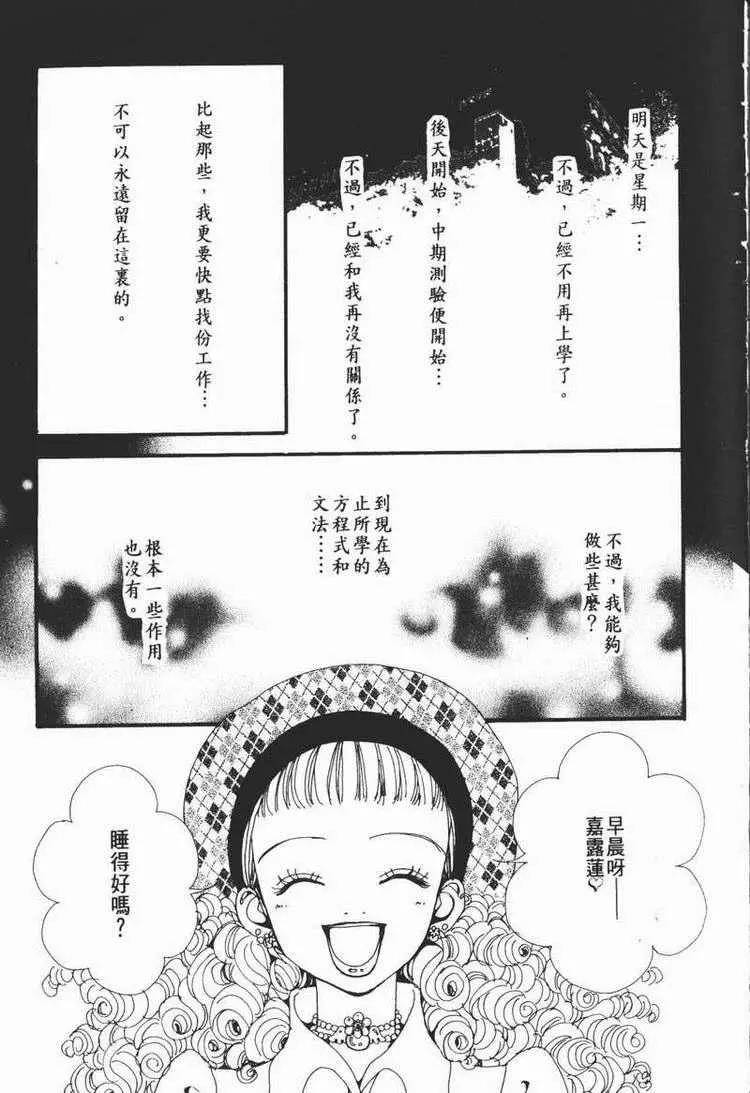 明天是星期一…
不過，已經不用再上學了。
後天開始，中期測驗便開始…
不過，已經和我再沒有關係了。
比起那些，我更要快點找份工作…
不可以永遠留在這裏的。
不過，我能夠
做些甚麼？
到現在為
止所學的
方程式和
文法……
根本一些作用
也沒有。
早晨呀──
嘉露蓮♡
睡得好嗎？